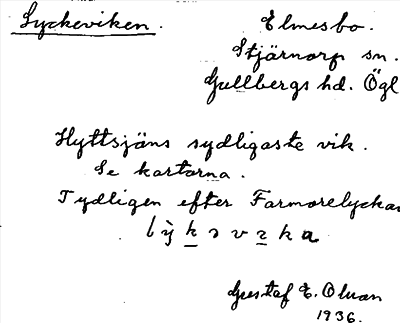 Lyckeviken.
Elmesbo.
Stjärnorp sn.
Gullbergs hd. Ögl
Hyttsjöns sydligaste vik.
Se kartorna.
Tydligen efter Farmorelyckan
Gustaf E. Olvan
1936.